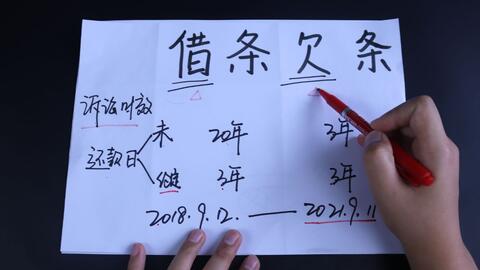 借条 欠条
诉讼时效
未 20年 3年
还款日
约定 3年 3年
2018.9.12. — 2021.9.11